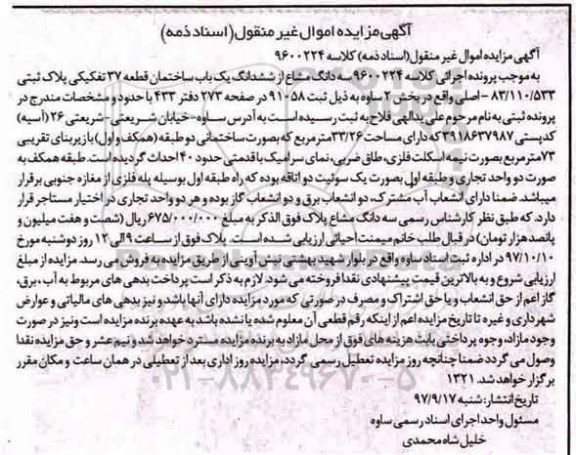 آگهی مزایده اموال غیر منقول (اسناد ذمه)
آگهی مزایده اموال غیر منقول(اسناد ذمه) کلاسه ۹۶۰۰۲۲۴
به موجب پرونده اجرائی کلاسه ۹۶۰۰۲۲۴ سه دانگ مشاع از ششدانگ یک باب ساختمان قطعه ۳۷ تفکیکی پلاک ثبتی
۸۳/۱۱۰/۵۳۳ - اصلی واقع در بخش ۲ ساوه به ذیل ثبت ۹۱۰۵۸ در صفحه ۲۷۳ دفتر ۴۳۳ با حدود و مشخصات مندرج در
پرونده ثبتی به نام مرحوم علی یدالهی فلاح به ثبت رسیده است به آدرس ساوه-خیابان شریعتی-شریعتی ۲۶ (آسیه)
کدپستی ۳۹۱۸۶۳۷۹۸۷ که دارای مساحت ۳۳/۲۶ متر مربع که بصورت ساختمانی دو طبقه (همکف و اول) با زیربنای تقریبی
۷۳ مترمربع بصورت نیمه اسکلت فلزی، طاق ضربی، نمای سرامیک با قدمتی حدود ۴۰ احداث گردیده است. طبقه همکف به
صورت دو واحد تجاری و طبقه اول بصورت یک سوئیت دو اتاقه بوده که راه طبقه اول بوسیله پله فلزی از مغازه جنوبی برقرار
میباشد. ضمنا دارای انشعاب آب مشترک، دو انشعاب برق و دو انشعاب گاز بوده و هر دو واحد تجاری در اختیار مستاجر قرار
دارد. که طبق نظر کارشناس رسمی سه دانگ مشاع پلاک فوق الذکر به مبلغ ۶۷۵/۰۰۰/۰۰۰ ریال (شصت و هفت میلیون و
پانصدهزار تومان) در قبال طلب خانم میمنت احیائی ارزیابی شده است. پلاک فوق از ساعت ۹ الی ۱۲ روز دوشنبه مورخ
۹۷/۱۰/۱۰ در اداره ثبت اسناد ساوه واقع در بلوار شهید بهشتی نبش آوینی از طریق مزایده به فروش می رسد. مزایده از مبلغ
ارزیابی شروع و به بالاترین قیمت پیشنهادی نقدا فروخته می شود. لازم به ذکر است پرداخت بدهی های مربوط به آب، برق،
گاز اعم از حق انشعاب و یا حق اشتراک و مصرف در صورتی که مورد مزایده دارای آنها باشد و نیز بدهی های مالیاتی و عوارض
شهرداری و غیره تا تاریخ مزایده اعم از اینکه رقم قطعی آن معلوم شده یا نشده باشد به عهده برنده مزایده است و نیز در صورت
وجود مازاد، وجوه پرداختی بابت هزینه های فوق از محل مازاد به برنده مزایده مسترد خواهد شد و نیم عشر و حق مزایده نقدا
وصول می گردد ضمنا چنانچه روز مزایده تعطیل رسمی گردد، مزایده روز اداری بعد از تعطیلی در همان ساعت و مکان مقرر
برگزار خواهد شد. ۱۳۲۱
۰۲۱-۸۸۳۴۹۶۷۰-۵
تاریخ انتشار: شنبه ۹۷/۹/۱۷
مسئول واحد اجرای اسناد رسمی ساوه
خلیل شاه محمدی